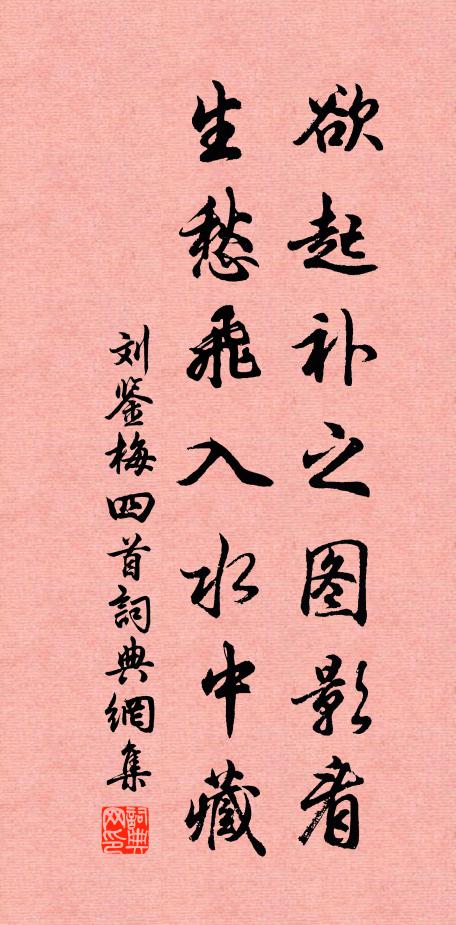 欲起补之图影看
生愁飛入水中藏
刘鉴梅四首詞典網集
詞典
网印